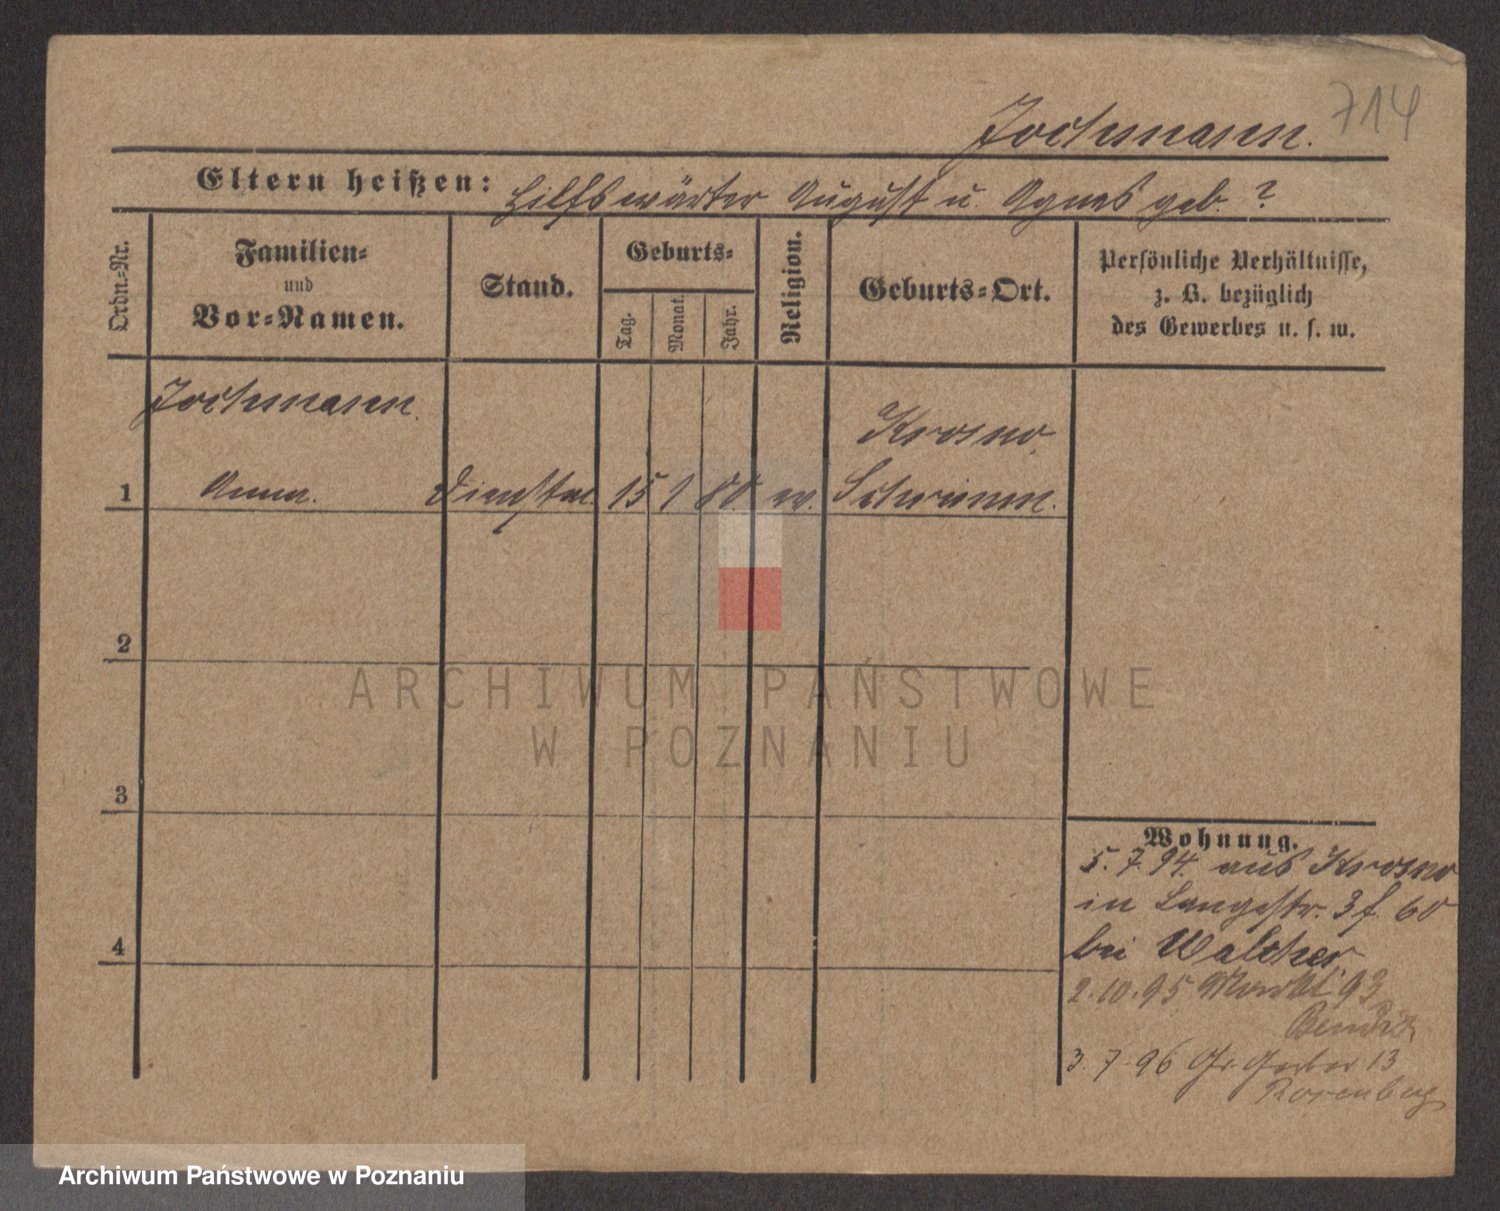 714
Jochmann.
Eltern heißen: Hilfswärter August u. Agnes geb. ?
Ordn.-Nr.
Familien-
und
Vor-Namen.
Stand.
Geburts-
Tag.
Monat.
Jahr.
Religion.
Geburts-Ort.
Persönliche Verhältnisse,
z. B. bezüglich
des Gewerbes u. s. w.
Jochmann.
Krosno,
1 Anna. Dienstm. 15 1 80. ev. Schrimm.
2
3
4
Wohnung.
5.7.94. aus Krosno
in Langestr. 3 f. 60
bei Walcher.
2.10.95 Markt 93
3.7.96 Gr. Gerber 13
Rosenberg
ARCHIWUM PAŃSTWOWE
W POZNANIU
Archiwum Państwowe w Poznaniu